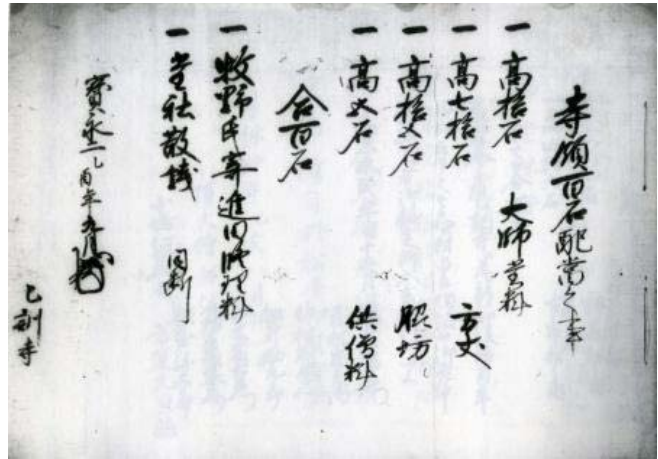 寺領百石配当之事
一 高拾石 大師堂料
一 高七拾石 方丈
一 高拾五石 脇坊
一 高五石 供僧料
合百石
一 牧野氏寄進田修理料
一 堂社散銭 同断
寳永二乙酉年九月
乙訓寺